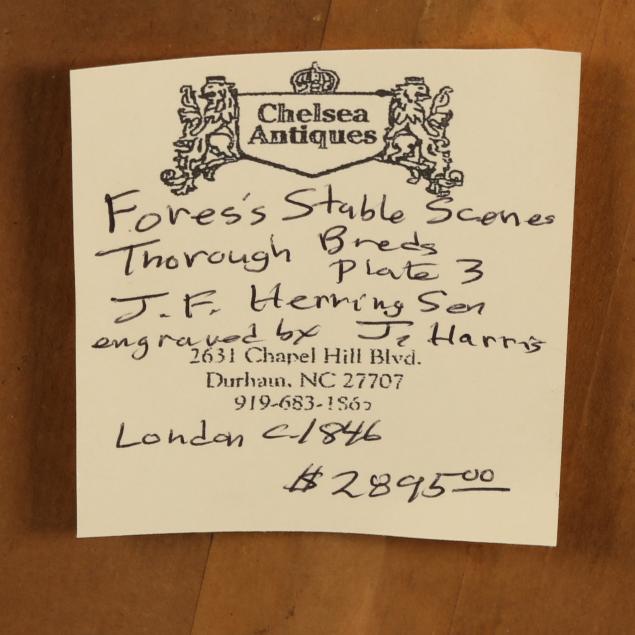 Chelsea
Antiques
Fores's Stable Scenes
Thorough Breds
Plate 3
J. F. Herring Sen
engraved by J. Harris
2631 Chapel Hill Blvd.
Durham, NC 27707
919-683-1865
London c-1846
$2895.00